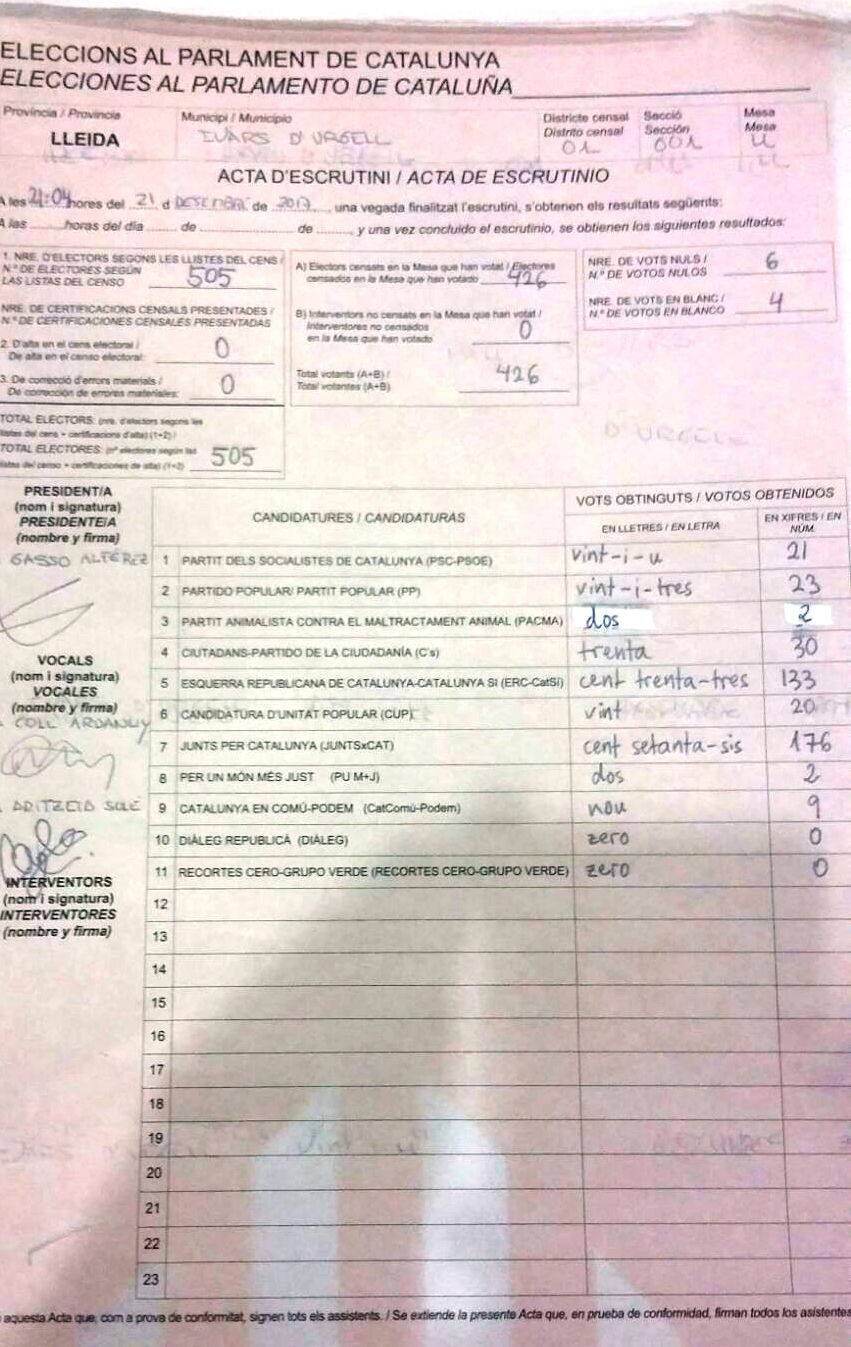 ELECCIONS AL PARLAMENT DE CATALUNYA
ELECCIONES AL PARLAMENTO DE CATALUÑA
Província / Provincia
LLEIDA
Municipi / Municipio
IVARS D'URGELL
Districte censal
Distrito censal
01
Secció
Sección
001
Mesa
Mesa
U
ACTA D'ESCRUTINI / ACTA DE ESCRUTINIO
A les 21:04 hores del 21 d DESEMBRE de 2017, una vegada finalitzat l'escrutini, s'obtenen els resultats següents:
A las ........ horas del día ........ de ........ de ........, y una vez concluido el escrutinio, se obtienen los siguientes resultados:
1. NRE. D'ELECTORS SEGONS LES LLISTES DEL CENS /
N.º DE ELECTORES SEGÚN
LAS LISTAS DEL CENSO 505
NRE. DE CERTIFICACIONS CENSALS PRESENTADES /
N.º DE CERTIFICACIONES CENSALES PRESENTADAS
2. D'alta en el cens electoral /
De alta en el censo electoral: 0
3. De correcció d'errors materials /
De corrección de errores materiales: 0
TOTAL ELECTORS: (nre. d'electors segons les
llistes del cens + certificacions d'alta) (1+2) /
TOTAL ELECTORES: (nº electores según las
listas del censo + certificaciones de alta) (1+2) 505
A) Electors censats en la Mesa que han votat / Electores
censados en la Mesa que han votado 426
B) Interventors no censats en la Mesa que han votat /
Interventores no censados
en la Mesa que han votado 0
Total votants (A+B) /
Total votantes (A+B) 426
NRE. DE VOTS NULS /
N.º DE VOTOS NULOS 6
NRE. DE VOTS EN BLANC /
N.º DE VOTOS EN BLANCO 4
D'URGELL
PRESIDENT/A
(nom i signatura)
PRESIDENTE/A
(nombre y firma)
GASSO ALTEREZ
VOCALS
(nom i signatura)
VOCALES
(nombre y firma)
COLL ARDANUY
SOLÉ
INTERVENTORS
(nom i signatura)
INTERVENTORES
(nombre y firma)
CANDIDATURES / CANDIDATURAS
VOTS OBTINGUTS / VOTOS OBTENIDOS
EN LLETRES / EN LETRA
EN XIFRES / EN NÚM.
1 PARTIT DELS SOCIALISTES DE CATALUNYA (PSC-PSOE) vint-i-u 21
2 PARTIDO POPULAR/ PARTIT POPULAR (PP) vint-i-tres 23
3 PARTIT ANIMALISTA CONTRA EL MALTRACTAMENT ANIMAL (PACMA) dos 2
4 CIUTADANS-PARTIDO DE LA CIUDADANÍA (C's) trenta 30
5 ESQUERRA REPUBLICANA DE CATALUNYA-CATALUNYA SÍ (ERC-CatSí) cent trenta-tres 133
6 CANDIDATURA D'UNITAT POPULAR (CUP) vint 20
7 JUNTS PER CATALUNYA (JUNTSxCAT) cent setanta-sis 176
8 PER UN MÓN MÉS JUST (PU M+J) dos 2
9 CATALUNYA EN COMÚ-PODEM (CatComú-Podem) nou 9
10 DIÀLEG REPUBLICÀ (DIÀLEG) zero 0
11 RECORTES CERO-GRUPO VERDE (RECORTES CERO-GRUPO VERDE) zero 0
12
13
14
15
16
17
18
19
20
21
22
23
aquesta Acta que, com a prova de conformitat, signen tots els assistents. / Se extiende la presente Acta que, en prueba de conformidad, firman todos los asistentes